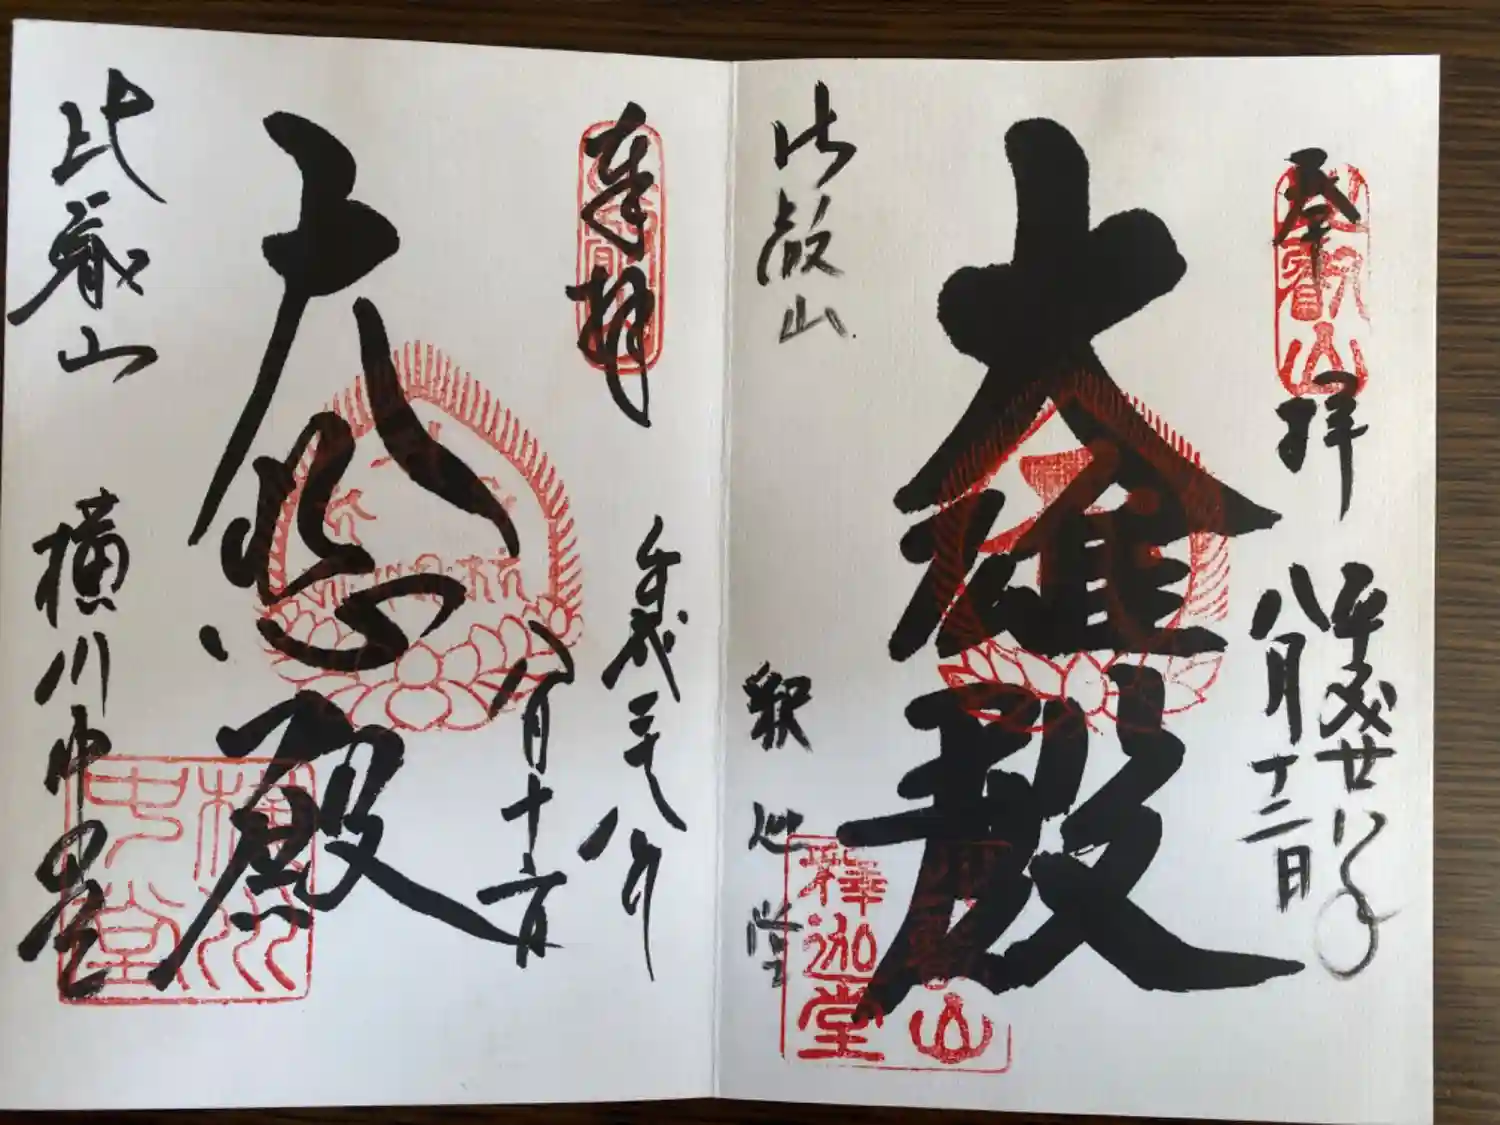 奉拝
平成二十八年
八月十二日
大雄殿
比叡山
釈迦堂
比叡山
比叡山
釋迦堂
奉拝
平成二十八年
八月十六日
大悲殿
比叡山
横川中堂
横川
中堂